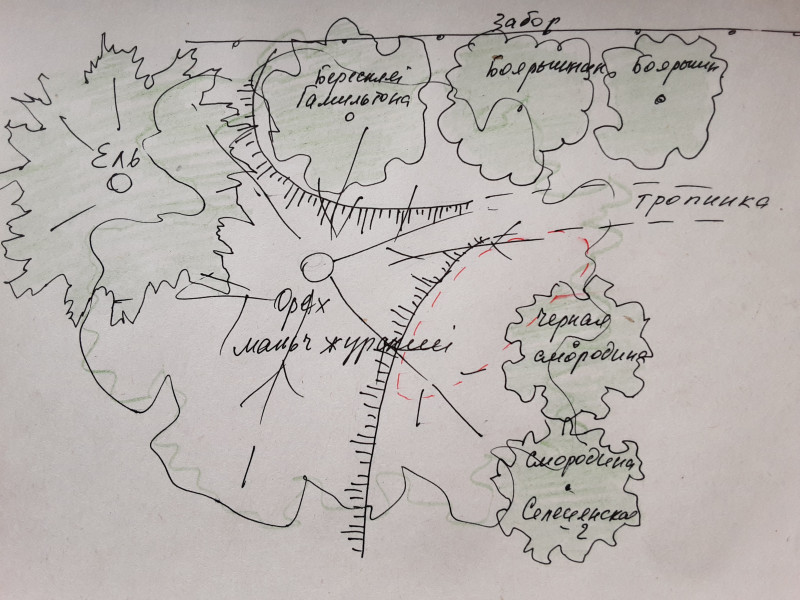 Забор
Бересклет
Гамильтона
Боярышник
Боярышн
Ель
Тропинка
Орех
маньчжурский
Черная
смородина
Смородина
Селеченская
-2